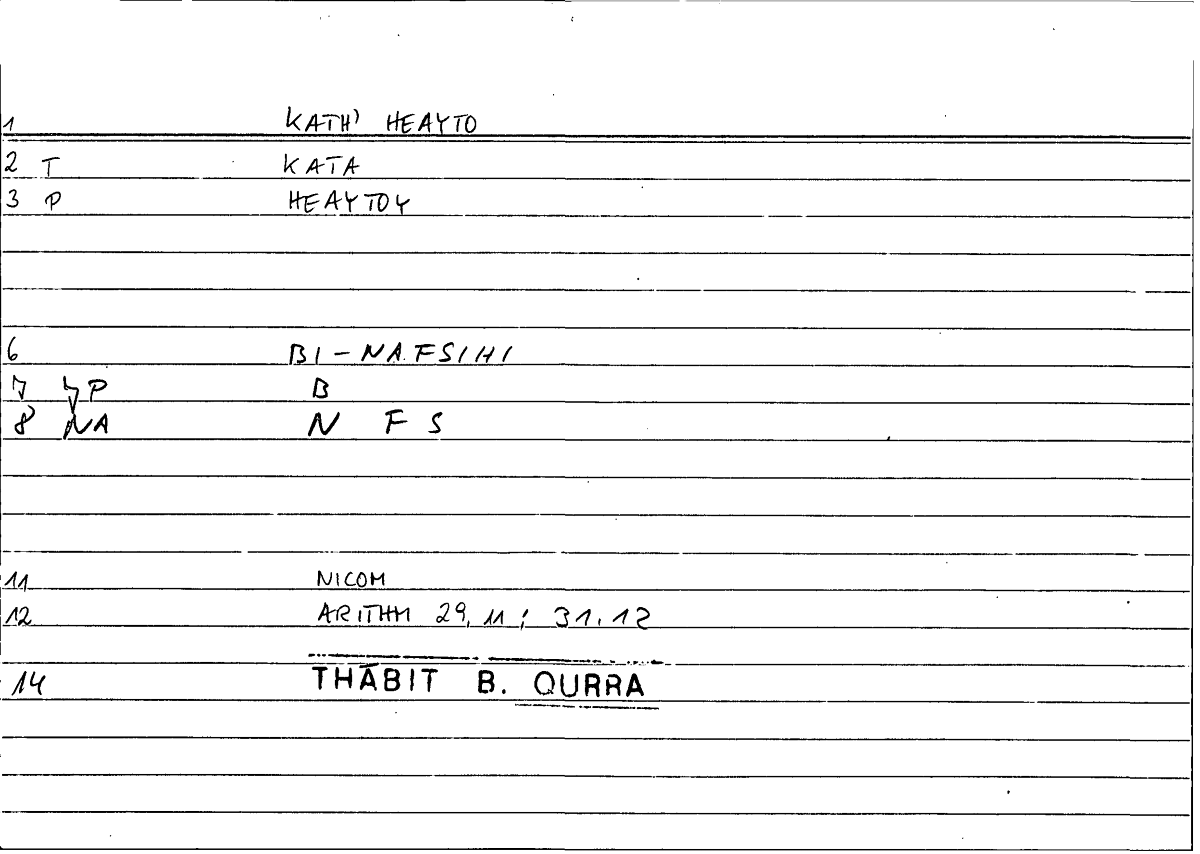 1 KATH' HEAYTO
2 T KATA
3 P HEAYTOY
6 BI-NAFSIHI
7 P B
8 NA N F S
11 NICOM
12 ARITHM 29, 11; 31.12
14 THĀBIT B. QURRA